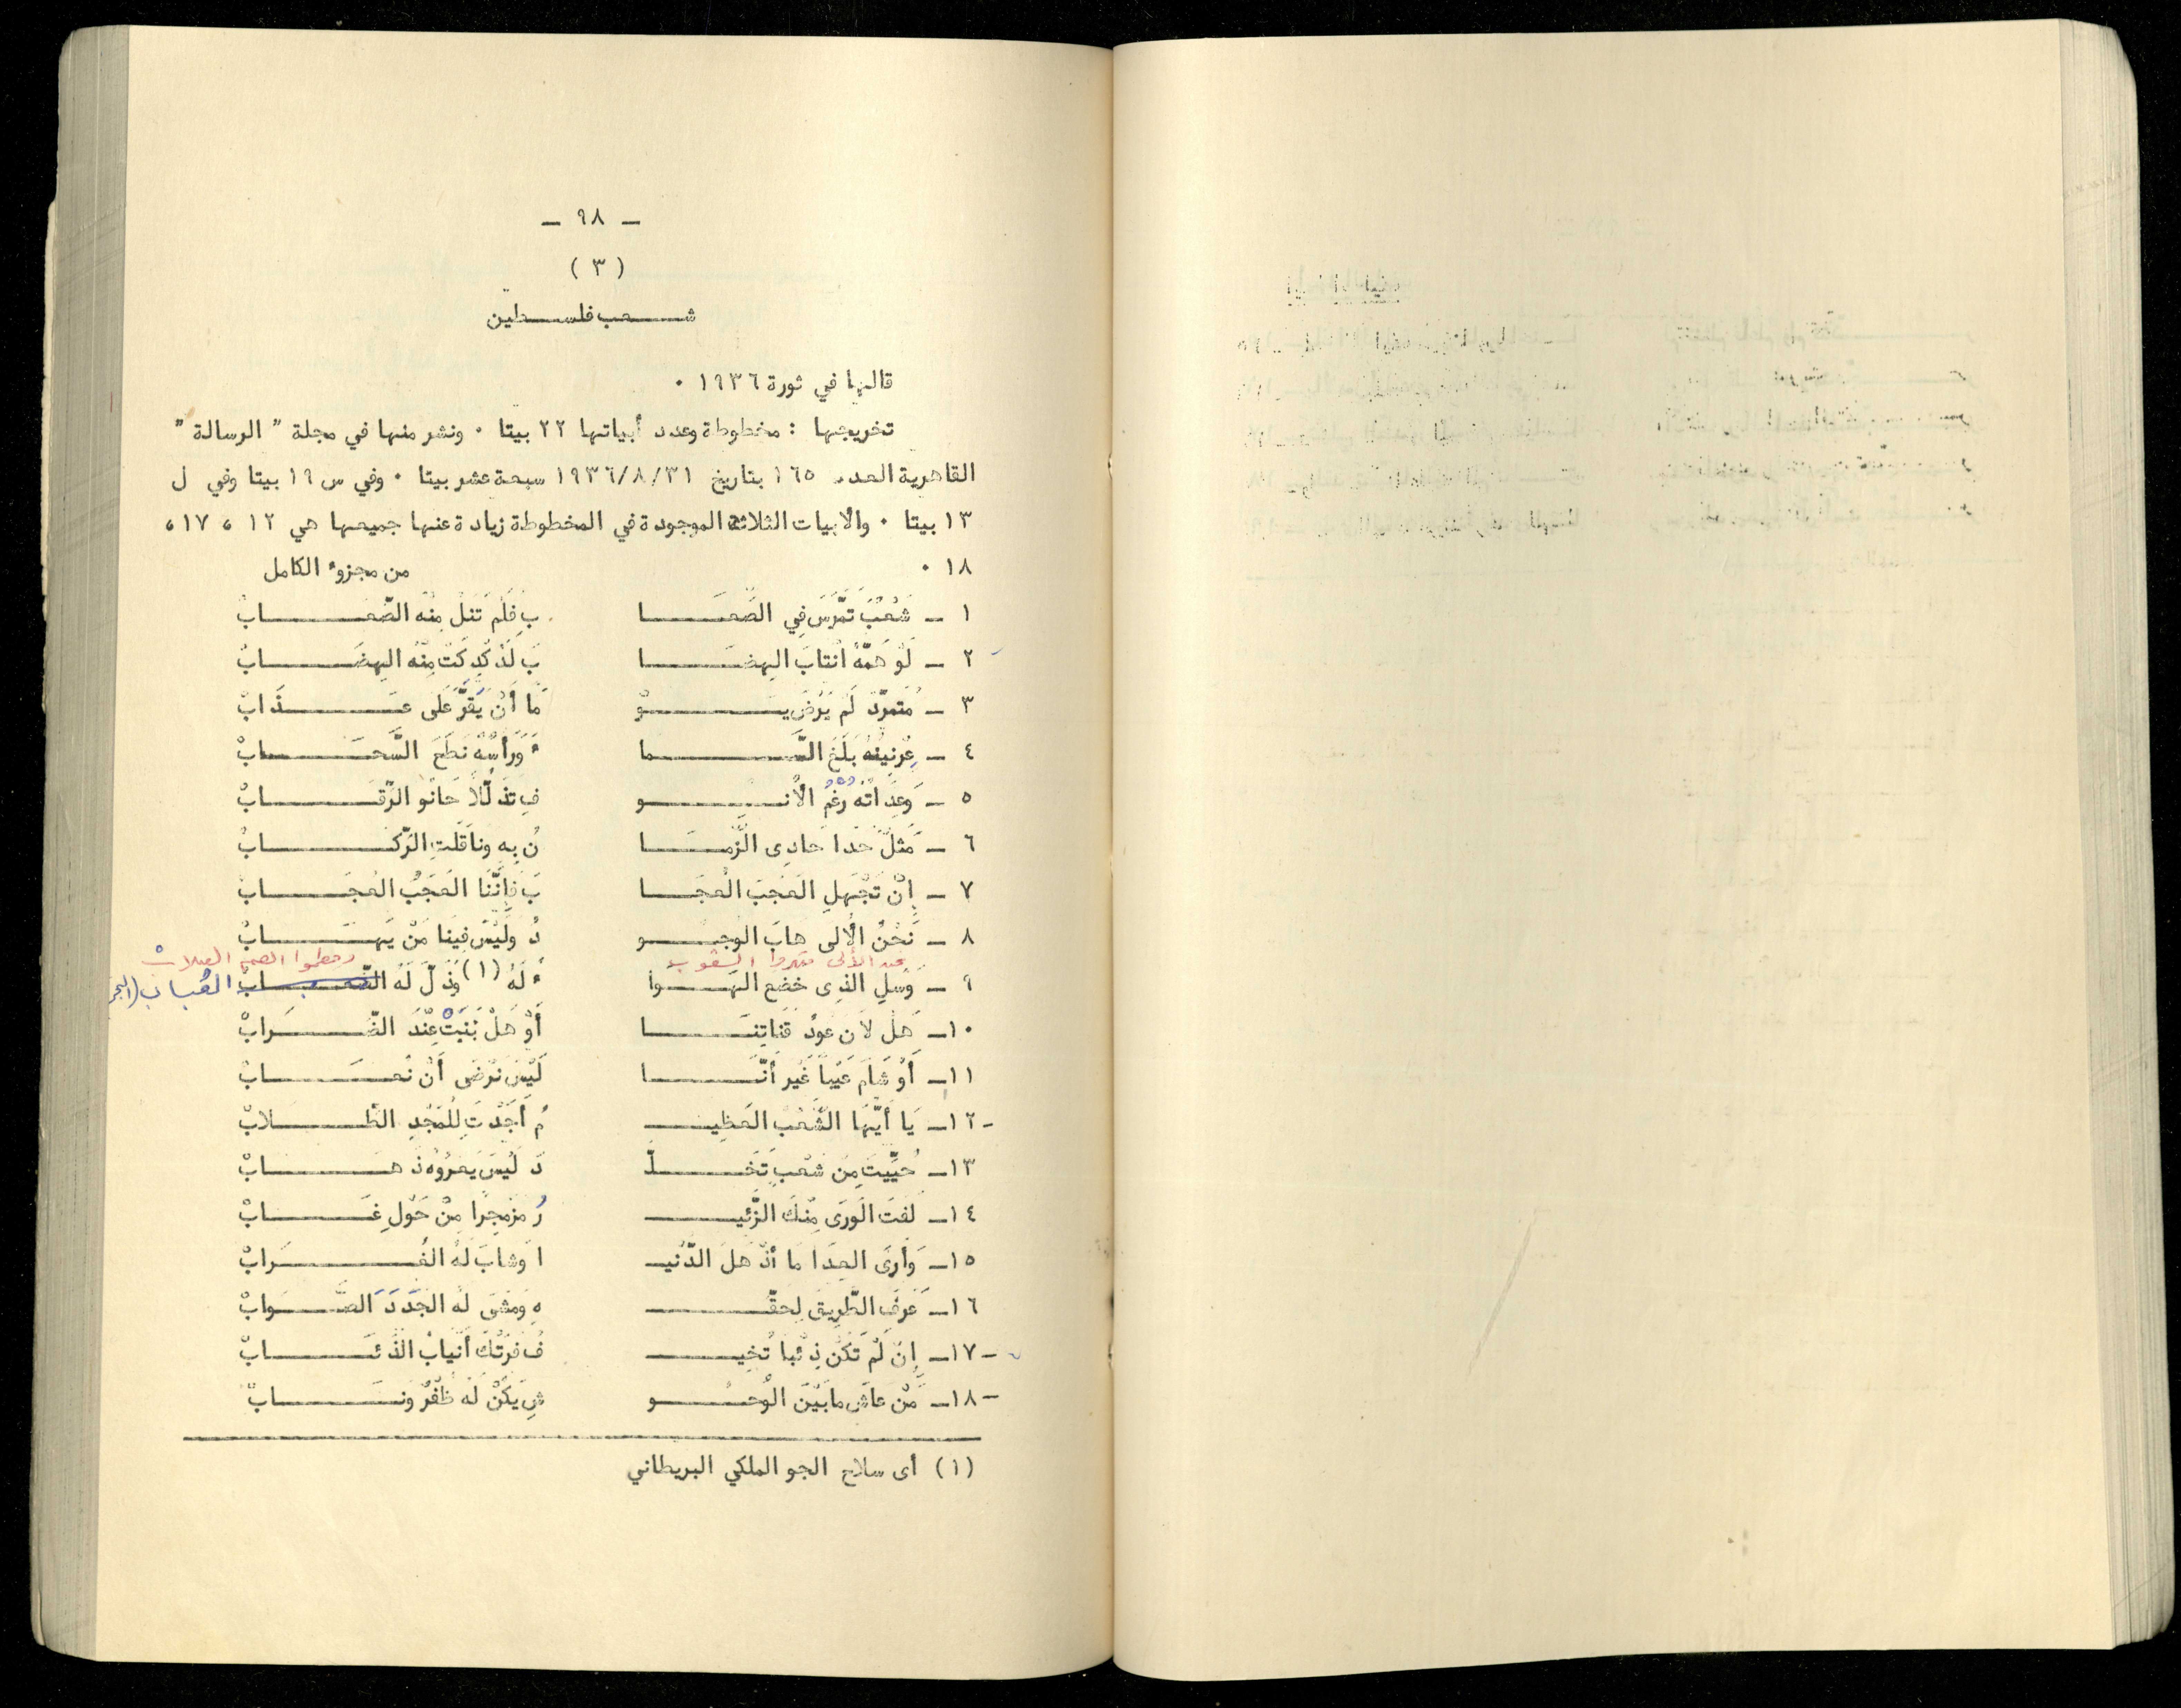 - ٩٨ -
( ٣ )
شعب فلسطين
قالها في ثورة ١٩٣٦ .
تخريجها : مخطوطة وعدد أبياتها ٢٢ بيتا . ونشر منها في مجلة " الرسالة "
القاهرية العدد ١٦٥ بتاريخ ١٩٣٦/٨/٣١ سبعة عشر بيتا . وفي س ١٩ بيتا وفي ل
١٣ بيتا . والأبيات الثلاثة الموجودة في المخطوطة زيادة عنها جميعها هي ١٢ ، ١٧ ،
١٨ . من مجزوء الكامل
١ - شَعْبٌ تَمَرَّسَ فِي الصِّعَـــا بِ فَلَمْ تَنَلْ مِنْهُ الصِّعَـــابْ
٢ - لَوْ هَمُّهُ انْتَابَ الهِضَـــا بَ لَدُكْدِكَتْ مِنْهُ الهِضَـــابْ
٣ - مُتَمَرِّدٌ لَمْ يَرْضَ يَـــوْ مًا أَنْ يَقَرَّ عَلَى عَـــذَابْ
٤ - عِرْنِينُهُ بَلَغَ السَّـــما ءَ وَرَأْسُهُ نَطَحَ السَّحَـــابْ
٥ - وَعِدَاتُهُ رُغْمُ الأُنُـــو فِ تَذَلُّلاً حَانُو الرِّقَـــابْ
٦ - مَثَلٌ حَدَا حَادِى الزَّمَـــا نُ بِهِ وَنَاقَلَتِ الرِّكَـــابْ
٧ - إِنْ تَجْهَلِ العَجَبَ العُجَـــا بَ فَإِنَّنَا العَجَبُ العُجَـــابْ
٨ - نَحْنُ الأُلى هَابَ الوُجُـــو دُ وَلَيْسَ فِينَا مَنْ يَهَـــابْ
وحطموا الصم الصلاب
٩ - وَسَلِ الذِى خَضَعَ الهَـــوا ءُ لَهُ (١) وَذَلَّ لَهُ العُباب
١٠ - هَلْ لاَنَ عُودُ قَنَاتِنَـــا أَوْ هَلْ نَبَتْ عِنْدَ الضِّـــرَابْ
١١ - أَوْ شَامَ عَيْبًا غَيْرَ أَنَّـــا لَيْسَ نَرْضَى أَنْ نُعَـــابْ
١٢ - يَا أَيُّهَا الشَّعْبُ العَظِيـــ مُ أَجَدْتَ لِلْمَجْدِ الطِّـــلابْ
١٣ - حُيِّيتَ مِنْ شَعْبٍ تَخَـــلَّ دَ لَيْسَ يَعْرُوهُ ذَهَـــابْ
١٤ - لَفَتَ الوَرَى مِنْكَ الزَّئِيـــ رُ مُزَمْجِرًا مِنْ حَوْلِ غَـــابْ
١٥ - وَأَرَى العِدَا مَا أَذْهَلَ الدُّنْيـ ا وَشَابَ لَهُ الغُـــرَابْ
١٦ - عَرَفَ الطَّرِيقَ لِحَقِّـــ هِ وَمَشَى لَهُ الجَدَدَ الصَّـــوابْ
١٧ - إِنْ لَمْ تَكُنْ ذِئْبًا تُخِيـــ فُ فَرَتْكَ أَنْيَابُ الذِّئَـــابْ
١٨ - مَنْ عَاشَ مَا بَيْنَ الْوُحُـــو شِ يَكُنْ لَهُ ظُفْرٌ وَنَـــابْ
(١) أى سلاح الجو الملكي البريطاني